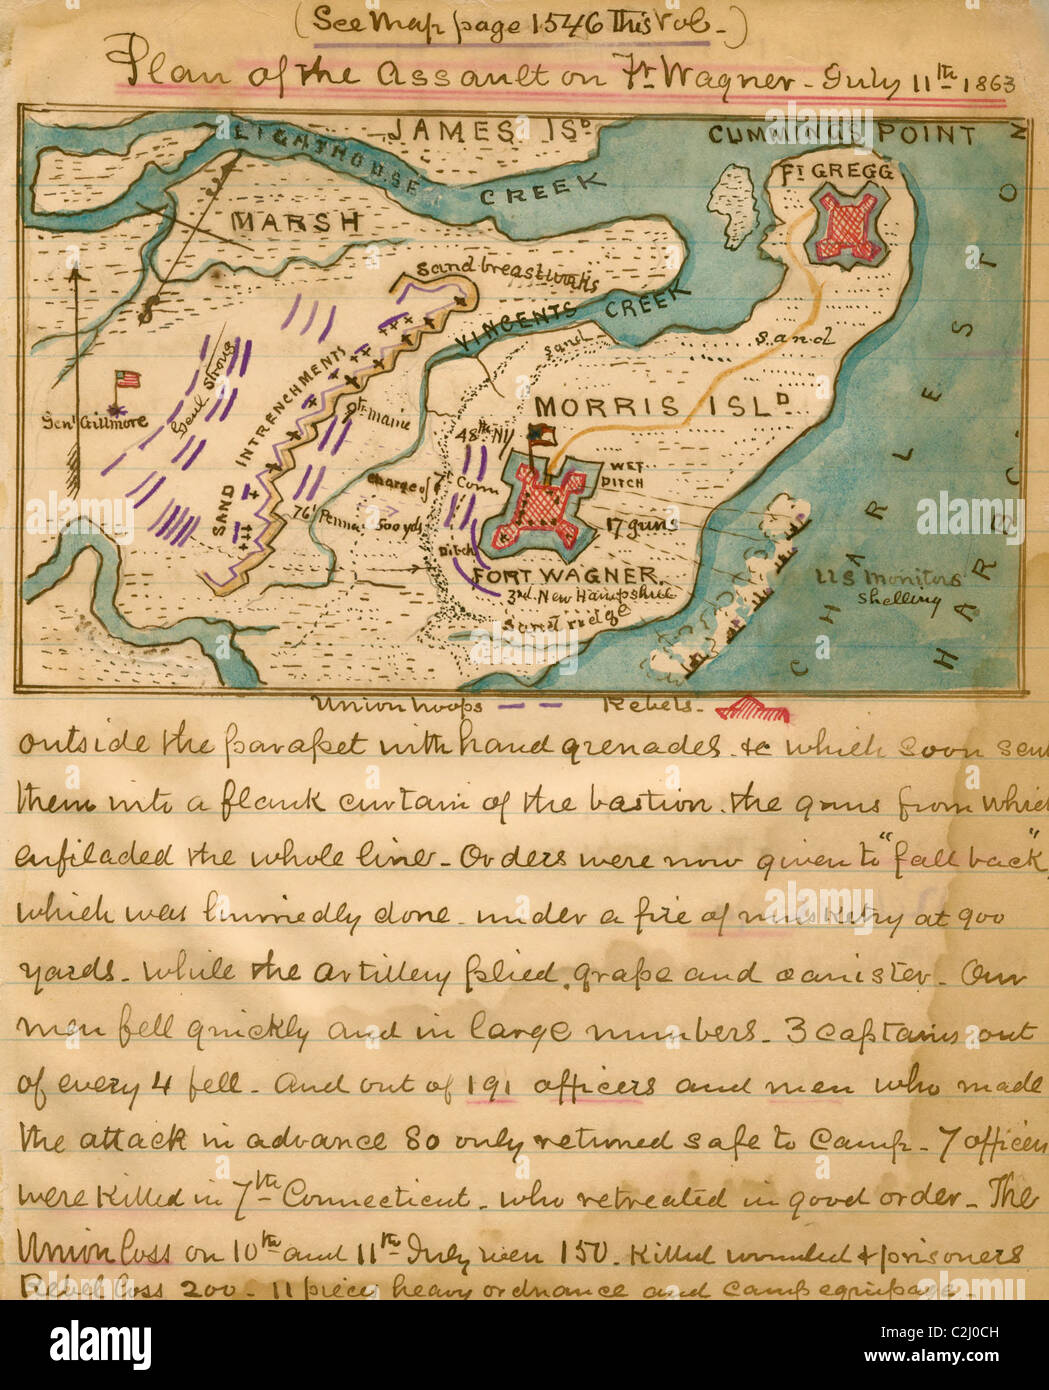 (See Map page 1546 This Vol.)
Plan of the Assault on Ft. Wagner - July 11th 1863
JAMES ISD
CUMMINGS POINT
LIGHTHOUSE CREEK
FT GREGG
MARSH
Sand breastworks
VINCENTS CREEK
sand
sand
CHARLESTON HARBOR
Genl Strong
Genl Gillmore
SAND INTRENCHMENTS
9th maine
MORRIS ISLD
48th NY
WET DITCH
charge of 7th Conn
76th Penna
500 yds
17 guns
Ditch
FORT WAGNER
3rd New Hampshire
Sand ridge
US Monitors
Shelling
Union troops
Rebels
outside the parapet with hand grenades &c which soon sent
them into a flank curtain of the bastion. the guns from which
enfiladed the whole line - Orders were now given to "fall back",
which was hurriedly done - under a fire of musketry at 900
yards - while the artillery plied grape and canister - Our
men fell quickly and in large numbers - 3 captains out
of every 4 fell - And out of 191 officers and men who made
the attack in advance 80 only returned safe to Camp - 7 officers
were killed in 7th Connecticut - who retreated in good order - The
Union loss on 10th and 11th July were 150. killed wounded & prisoners
Rebel loss 200 - 11 pieces heavy ordnance and camp equipage -
alamy
Image ID: C2J0CH
www.alamy.com